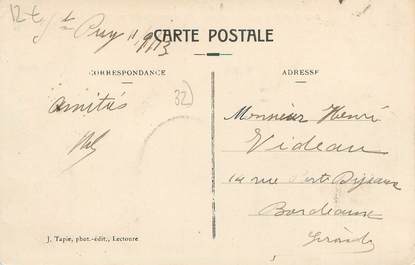 12 €
St Puy 1913
CARTE POSTALE
CORRESPONDANCE
ADRESSE
amitiés
32
Monsieur Henri
Videau
14 rue Porte Dijeaux
Bordeaux
Gironde
J. Tapie, phot.-édit., Lectoure